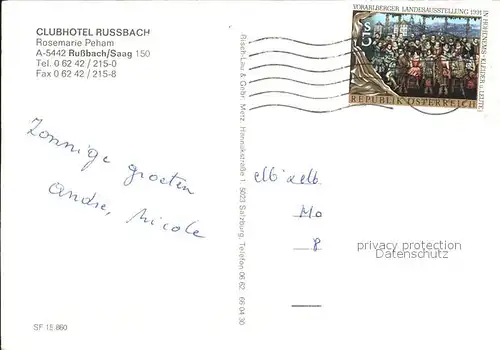 CLUBHOTEL RUSSBACH
Rosemarie Peham
A-5442 Rußbach/Saag 150
Tel. 0 62 42 / 215-0
Fax 0 62 42 / 215-8
VORARLBERGER LANDESAUSSTELLUNG 1991
IN HOHENEMS · KLEIDER u. LEUTE
S 5
REPUBLIK ÖSTERREICH
Zonnige groeten
Andre, Nicole
Risch-Lau & Gebr. Metz, Hannakstraße 1, 5023 Salzburg, Telefon 06 62 66 04 30
Mo
8
privacy protection
Datenschutz
SF 15.860